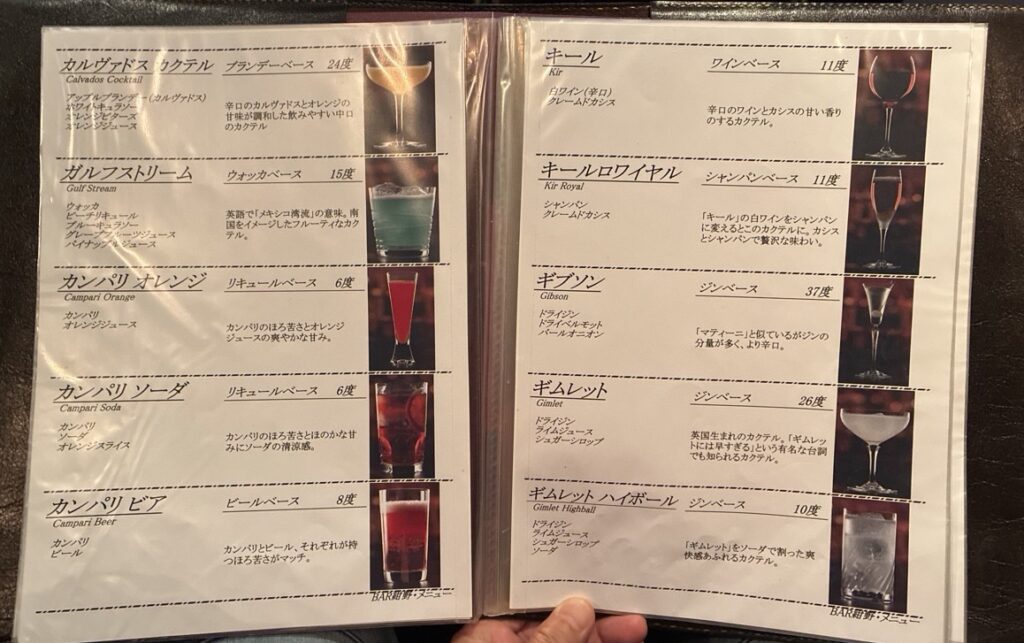 カルヴァドス カクテル ブランデーベース 24度
Calvados Cocktail
アップルブランデー(カルヴァドス)
ホワイトキュラソー
オレンジビターズ
オレンジジュース
辛口のカルヴァドスとオレンジの
甘味が調和した飲みやすい中口
のカクテル
ガルフストリーム ウォッカベース 15度
Gulf Stream
ウォッカ
ピーチリキュール
ブルーキュラソー
グレープフルーツジュース
パイナップルジュース
英語で「メキシコ湾流」の意味。南
国をイメージしたフルーティなカク
テル。
カンパリ オレンジ リキュールベース 6度
Campari Orange
カンパリ
オレンジジュース
カンパリのほろ苦さとオレンジ
ジュースの爽やかな甘み。
カンパリ ソーダ リキュールベース 6度
Campari Soda
カンパリ
ソーダ
オレンジスライス
カンパリのほろ苦さとほのかな甘
みにソーダの清涼感。
カンパリ ビア ビールベース 8度
Campari Beer
カンパリ
ビール
カンパリとビール、それぞれが持
つほろ苦さがマッチ。
キール ワインベース 11度
Kir
白ワイン(辛口)
クレームドカシス
辛口のワインとカシスの甘い香り
のするカクテル。
キールロワイヤル シャンパンベース 11度
Kir Royal
シャンパン
クレームドカシス
「キール」の白ワインをシャンパン
に変えるとこのカクテルに。カシス
とシャンパンで贅沢な味わい。
ギブソン ジンベース 37度
Gibson
ドライジン
ドライベルモット
パールオニオン
「マティーニ」と似ているがジンの
分量が多く、より辛口。
ギムレット ジンベース 26度
Gimlet
ドライジン
ライムジュース
シュガーシロップ
英国生まれのカクテル。「ギムレッ
トには早すぎる」という有名な台詞
でも知られるカクテル。
ギムレット ハイボール ジンベース 10度
Gimlet Highball
ドライジン
ライムジュース
シュガーシロップ
ソーダ
「ギムレット」をソーダで割った爽
快感あふれるカクテル。